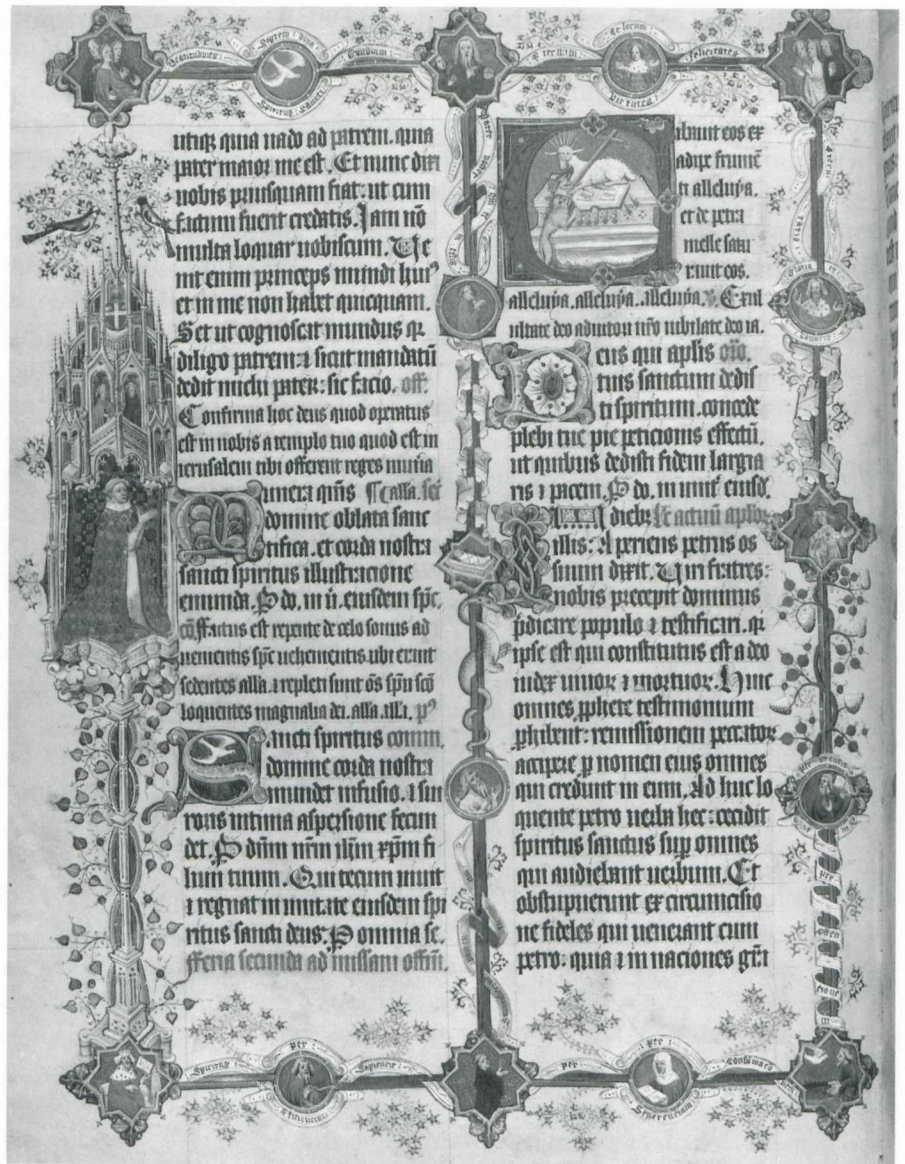 Beatitudines Septem dona
Spiritus Sancti
Celorum felicitates
Virtutes
utiq; quia vado ad patrem. quia
pater maior me est. Et nunc dixi
uobis priusquam fiat: ut cum
factum fuerit credatis. Iam nō
multa loquar uobiscum. Ue
nit enim princeps mundi huiꝰ
et in me non habet quicquam.
Set ut cognoscat mundus qꝛ
diligo patrem: ⁊ sicut mandatū
dedit michi pater: sic facio. off.
Confirma hoc deus quod operatus
est in nobis a templo tuo quod est in
ierusalem tibi offerent reges mun̄a
Munera qūs alla. sec̄
domine oblata sanc
tifica. et corda nostra
sancti spiritus illustracione
emunda. P do. in ū. eiusdem sp̄c.
cō. Factus est repente de celo sonus ad
uenientis sp̄c uehementis. ubi erant
sedentes alla. ⁊ repleti sunt ōs sp̄u scō
loquentes magnalia dei. alla. alla. pꝰ
Sancti spiritus comm.
domine corda nostra
mundet infusio. ⁊ sui
roris intima aspersione fecun
det. P dn̄m nr̄m ih̄m xp̄m fi
lium tuum. Qui tecum uiuit
⁊ regnat in unitate eiusdem spi
ritus sancti deus. P omnia se.
fferia secunda ad missam offm̄.
Cibauit eos ex
adipe frumē
ti alleluya.
et de petra
melle satu
rauit eos.
alleluya. alleluya. alleluya. Exul
tate deo adiutori nr̄o iubilate deo ia.
Deus qui aplis oīo.
tuis sanctum dedis
ti spiritum. concede
plebi tue pie peticionis effectū.
ut quibus dedisti fidem largia
ris ⁊ pacem. P do. in unit̄ eiusd.
In diebꝫ actuū aplōꝝ
illis: Aperiens petrus os
suum dixit. Uiri fratres:
nobis precepit dominus
p̄dicare populo ⁊ testificari. qꝛ
ipse est qui constitutus est a deo
iudex uiuoꝝ ⁊ mortuoꝝ. Huic
omnes p̄phete testimonium
phibent: remissionem peccatoꝝ
accipere p nomen eius omnes
qui credunt in eum. Ad huc lo
quente petro uerba hec: cecidit
spiritus sanctus sup omnes
qui audiebant uerbum. Et
obstupuerunt ex circumcisio
ne fideles qui uenerant cum
petro. quia ⁊ in naciones gr̄a
Spiritus per Sapiencie
per per